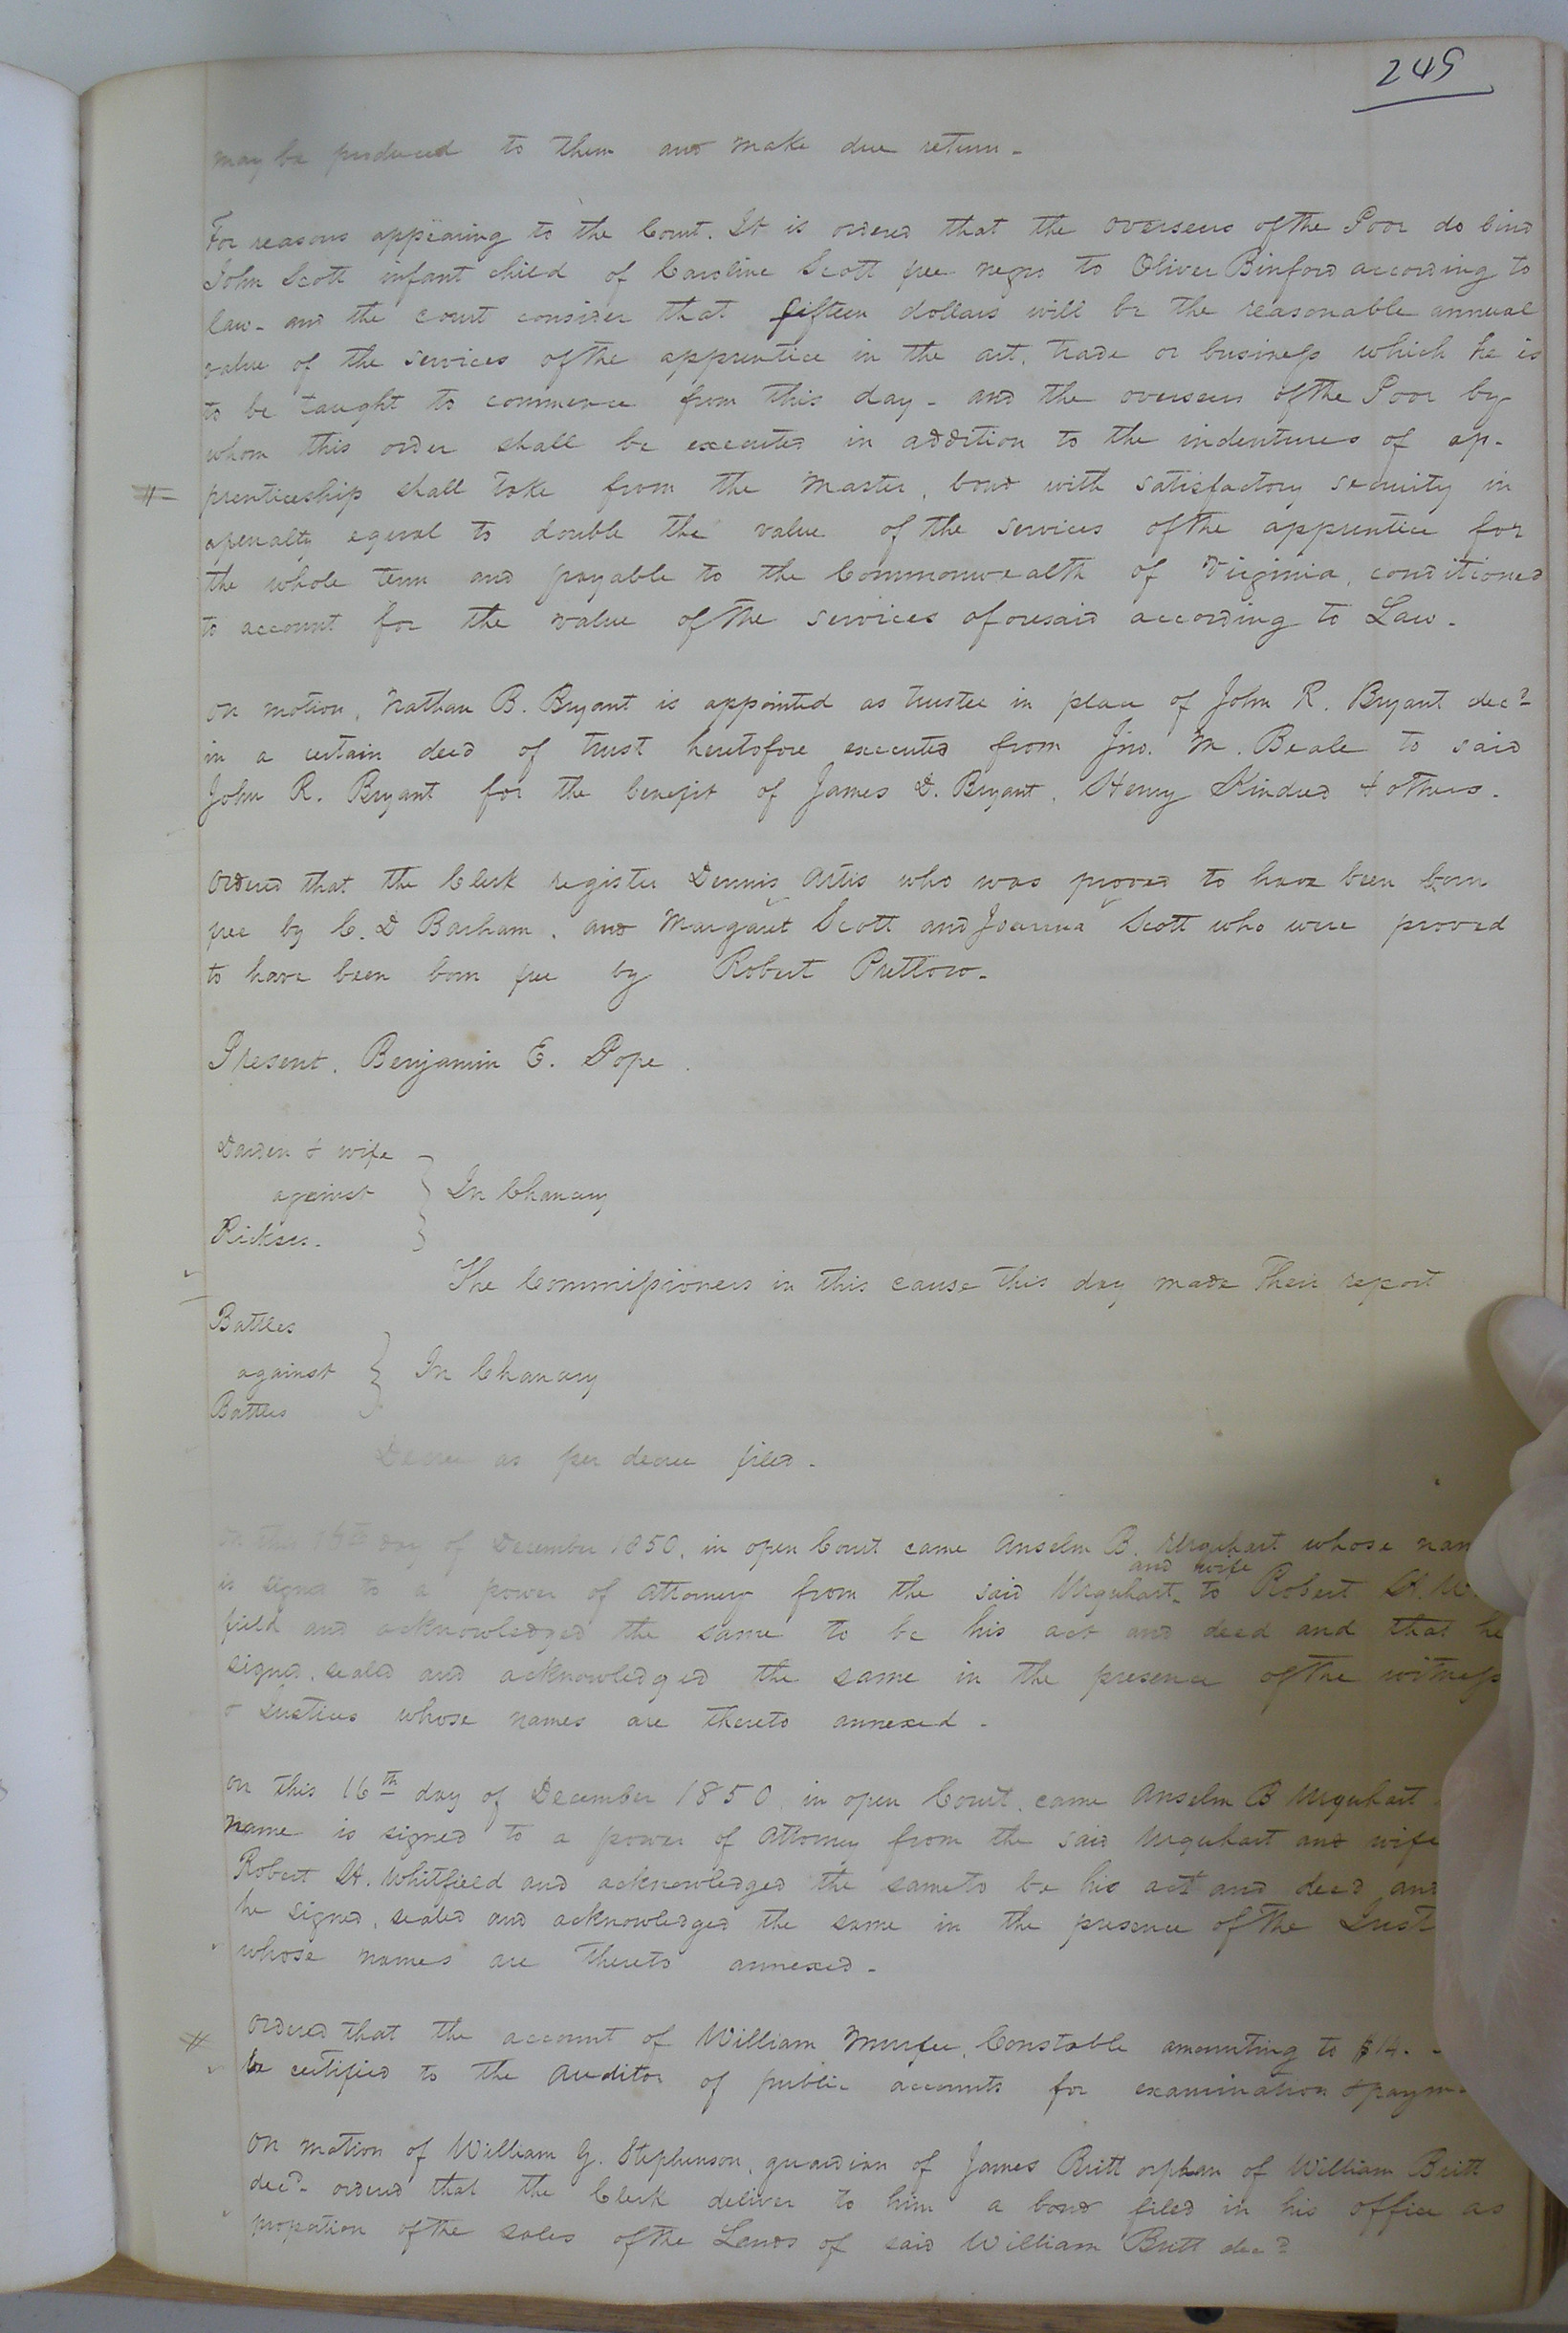 249
may be produced to them and make due return -
For reasons appearing to the Court. It is ordered that the overseers of the Poor do bind
John Scott infant child of Caroline Scott free negro to Oliver Binford according to
law - and the court consider that fifteen dollars will be the reasonable annual
value of the services of the apprentice in the art, trade or business which he is
to be taught to commence from this day - and the overseers of the Poor by
whom this order shall be executed in addition to the indentures of ap-
prenticeship shall take from the Master, bond with satisfactory security in
a penalty equal to double the value of the services of the apprentice for
the whole term and payable to the Commonwealth of Virginia, conditioned
to account for the value of the services aforesaid according to Law -
On motion, Nathan B. Bryant is appointed as trustee in place of John R. Bryant decd
in a certain deed of trust heretofore executed from Jno. M. Beale to said
John R. Bryant for the benefit of James D. Bryant, Henry Kindred & others -
Ordered that the Clerk register Dennis Artis who was proved to have been born
free by C. D Barham, and Margaret Scott and Joanna Scott who were proved
to have been born free by Robert Pretlow -
Present, Benjamin E. Pope.
Darden & wife
against } In Chancery
Rickses -
The Commissioners in this cause this day made their report
Battles
against } In Chancery
Battles
Decree as per decree filed -
On this 16th day of December 1850, in open Court came Anselm B. Urquhart whose nam
is signed to a power of Attorney from the said Urquhart and wife to Robert H. W
field and acknowledged the same to be his act and deed and that he
signed, sealed and acknowledged the same in the presence of the witness
& Justices whose names are thereto annexed -
On this 16th day of December 1850, in open Court, came Anselm B Urquhart
name is signed to a power of Attorney from the said Urquhart and wife
Robert H. Whitfield and acknowledged the same to be his act and deed and
he signed, sealed and acknowledged the same in the presence of the Just
whose names are thereto annexed -
Ordered that the account of William Murfee, Constable amounting to $14. -
be certified to the Auditor of public accounts for examination & paym
On motion of William G. Stephenson, guardian of James Britt orphan of William Britt
decd - ordered that the Clerk deliver to him a bond filed in his office as
propotion of the sales of the Lands of said William Britt decd